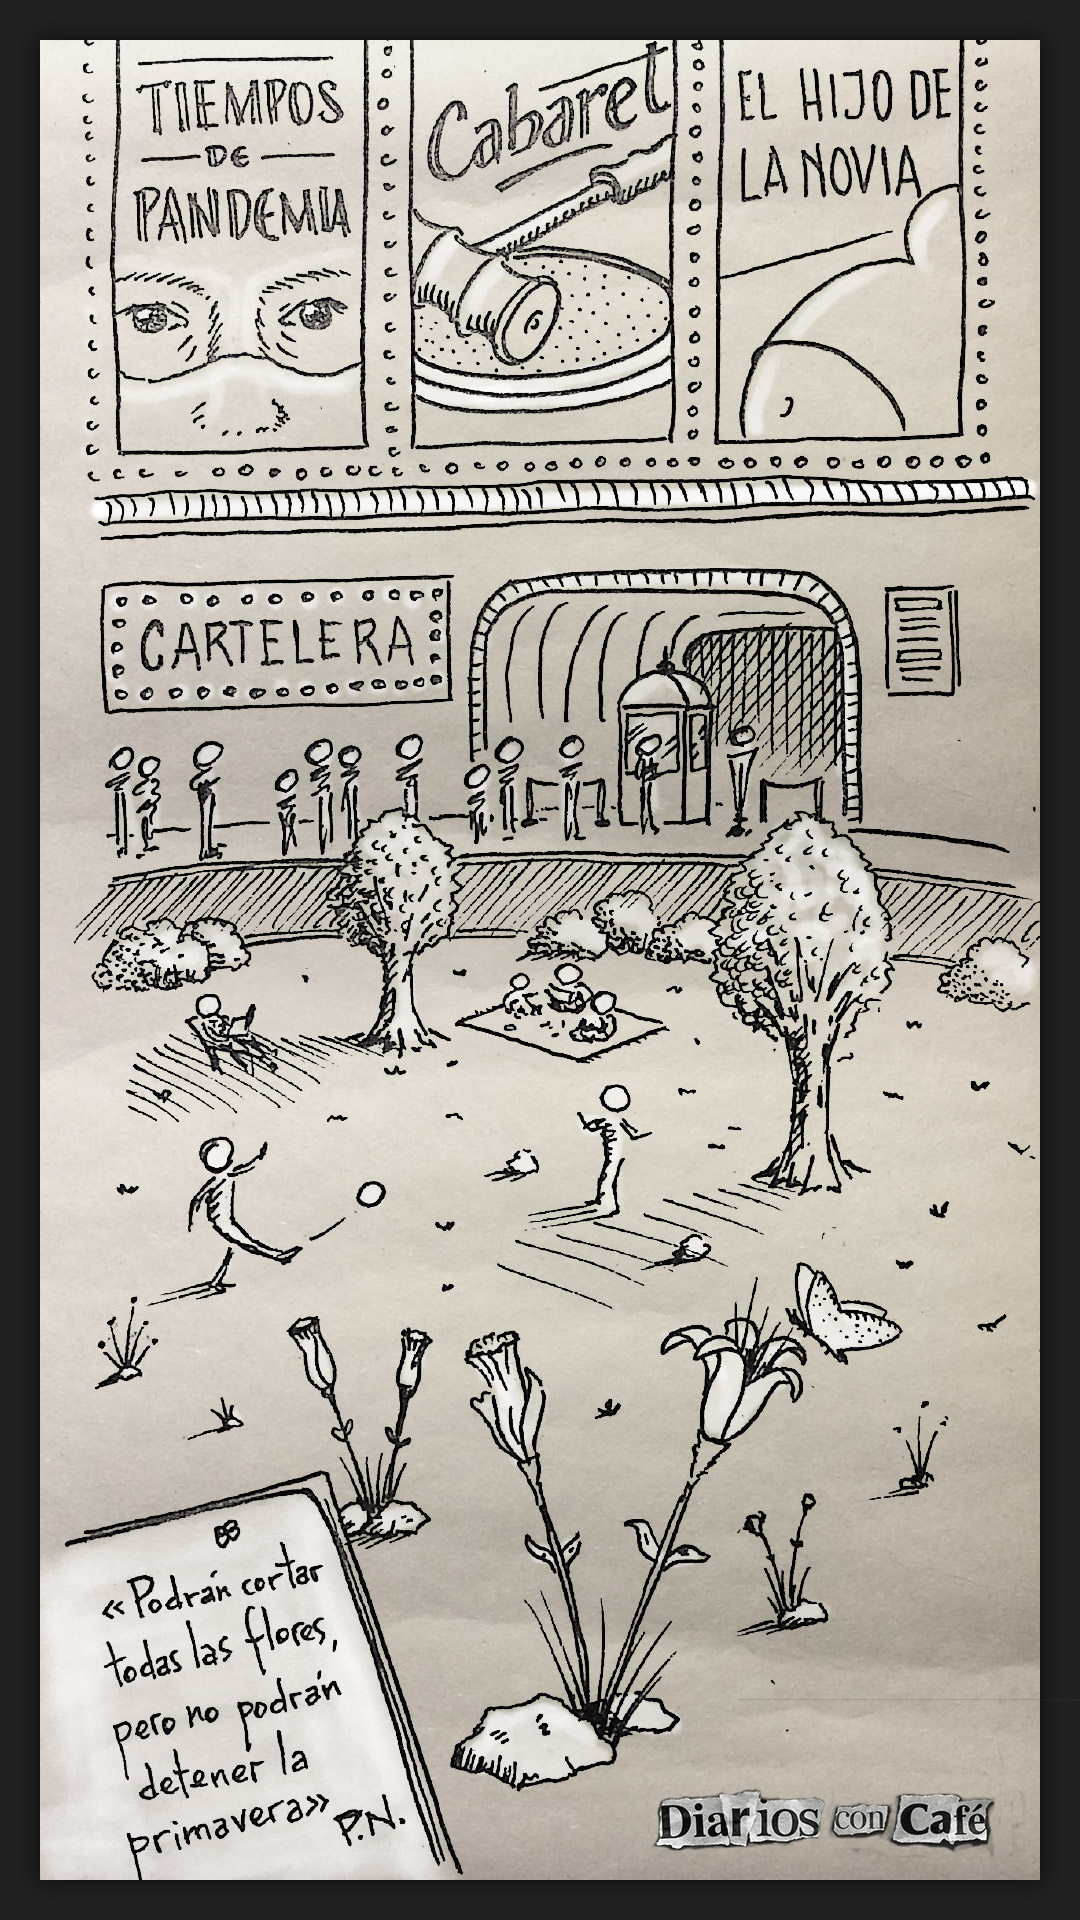 TIEMPOS
DE
PANDEMIA
Cabaret
EL HIJO DE
LA NOVIA
CARTELERA
«Podrán cortar
todas las flores,
pero no podrán
detener la
primavera»
P.N.
Diarios con Café